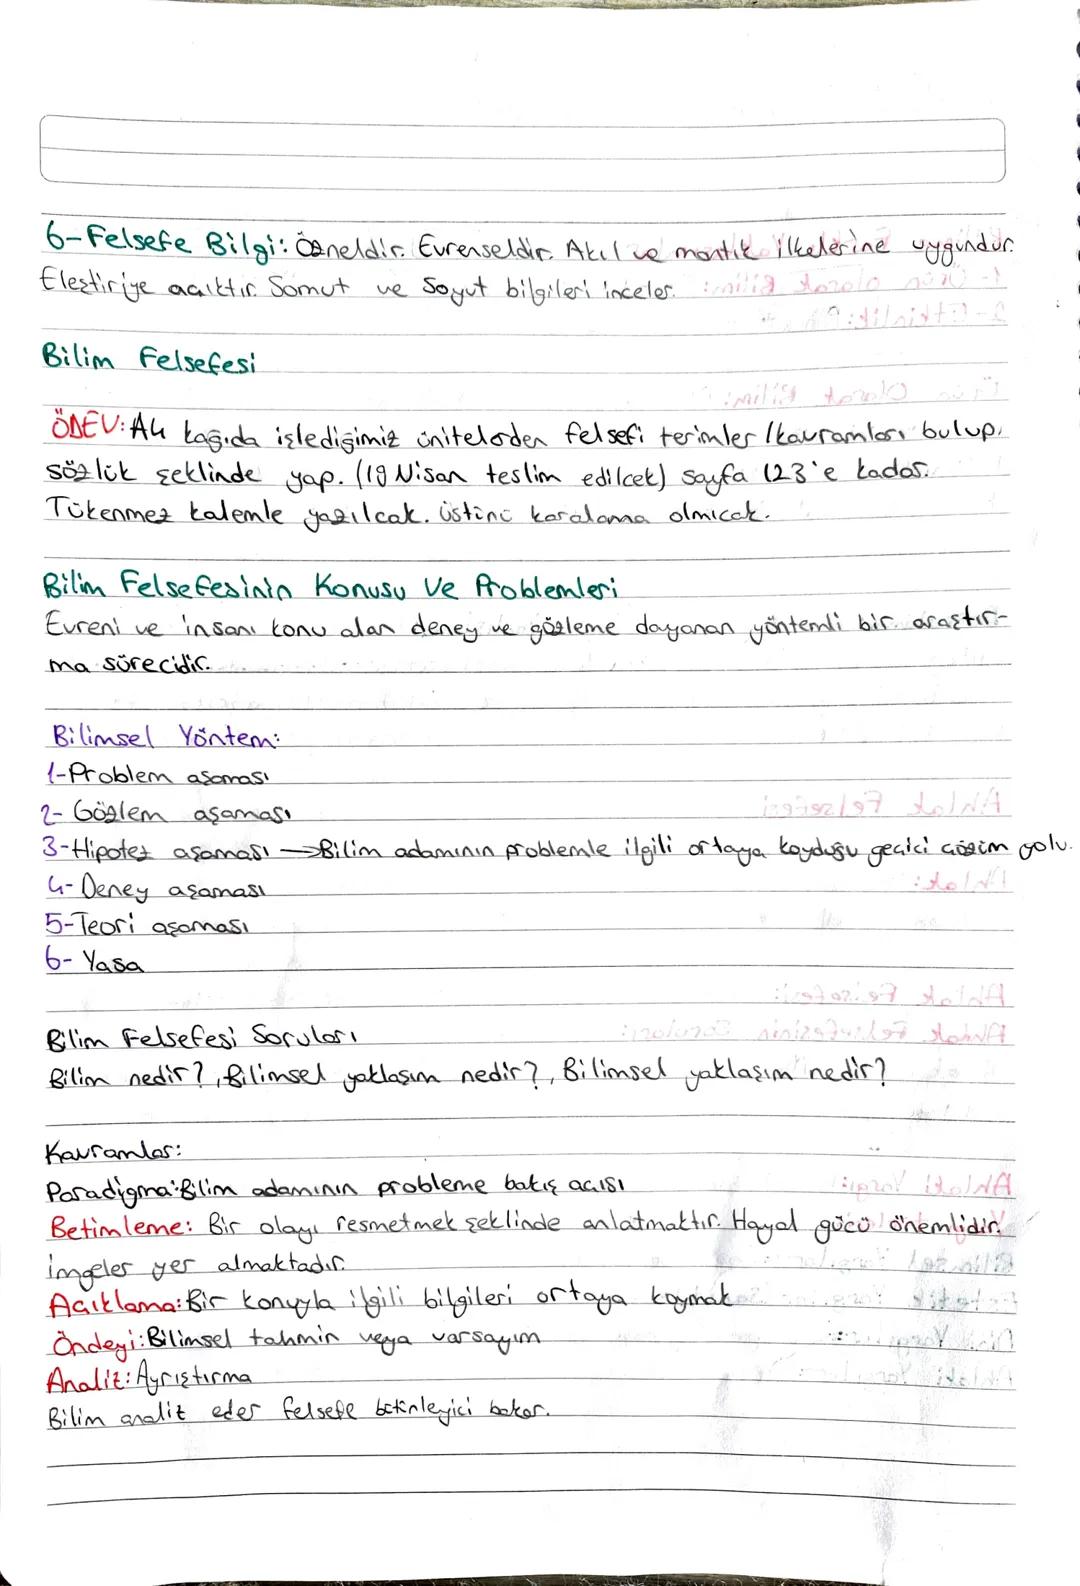 6-Felsefe Bilgi: Özneldir. Evrenseldir. Akıl ve mantık ilkelerine uygundur.
Eleştiriye açıktır. Somut ve Soyut bilgileri inceler.
Bilim Felsefesi
ÖDEV: A4 kağıda işlediğimiz ünitelerden felsefi terimler/kavramları bulup,
sözlük şeklinde yap. (19 Nisan teslim edilcek) sayfa 123'e kadar.
Tükenmez kalemle yazılcak. üstünü karalama olmıcak.
Bilim Felsefesinin Konusu Ve Problemleri
Evreni ve insanı konu alan deney ve gözleme dayanan yöntemli bir araştır-
ma sürecidir.
Bilimsel Yöntem:
1-Problem aşaması
2- Gözlem aşaması
3-Hipotez aşaması →Bilim adamının problemle ilgili ortaya koyduğu geçici çözüm yolu.
4-Deney aşaması
5-Teori aşaması
6- Yasa
Bilim Felsefesi Soruları
Bilim nedir?, Bilimsel yaklaşım nedir?, Bilimsel yaklaşım nedir?
Kavramlar:
Paradigma: Bilim adamının probleme bakış açısı
Betimleme: Bir olayı resmetmek şeklinde anlatmaktır. Hayal gücü önemlidir.
İmgeler yer almaktadır.
Açıklama: Bir konuyla ilgili bilgileri ortaya koymak
Öndeyi: Bilimsel tahmin veya varsayım
Analiz: Ayrıştırma
Bilim analiz eder felsefe bakar.